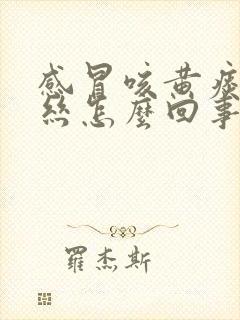 感冒咳黄痰
丝怎麼回事
羅杰斯